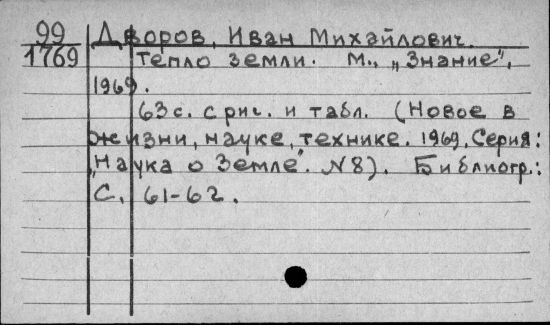 99 Дворов, Иван Михайлович.
1769 Тепло земли. М., „Знание",
1969.
63 с. с рис. и табл. (Новое в
жизни, науке, технике. 1969. Серия:
„Наука о Земле". №8). Библиогр.:
с. 61-62.